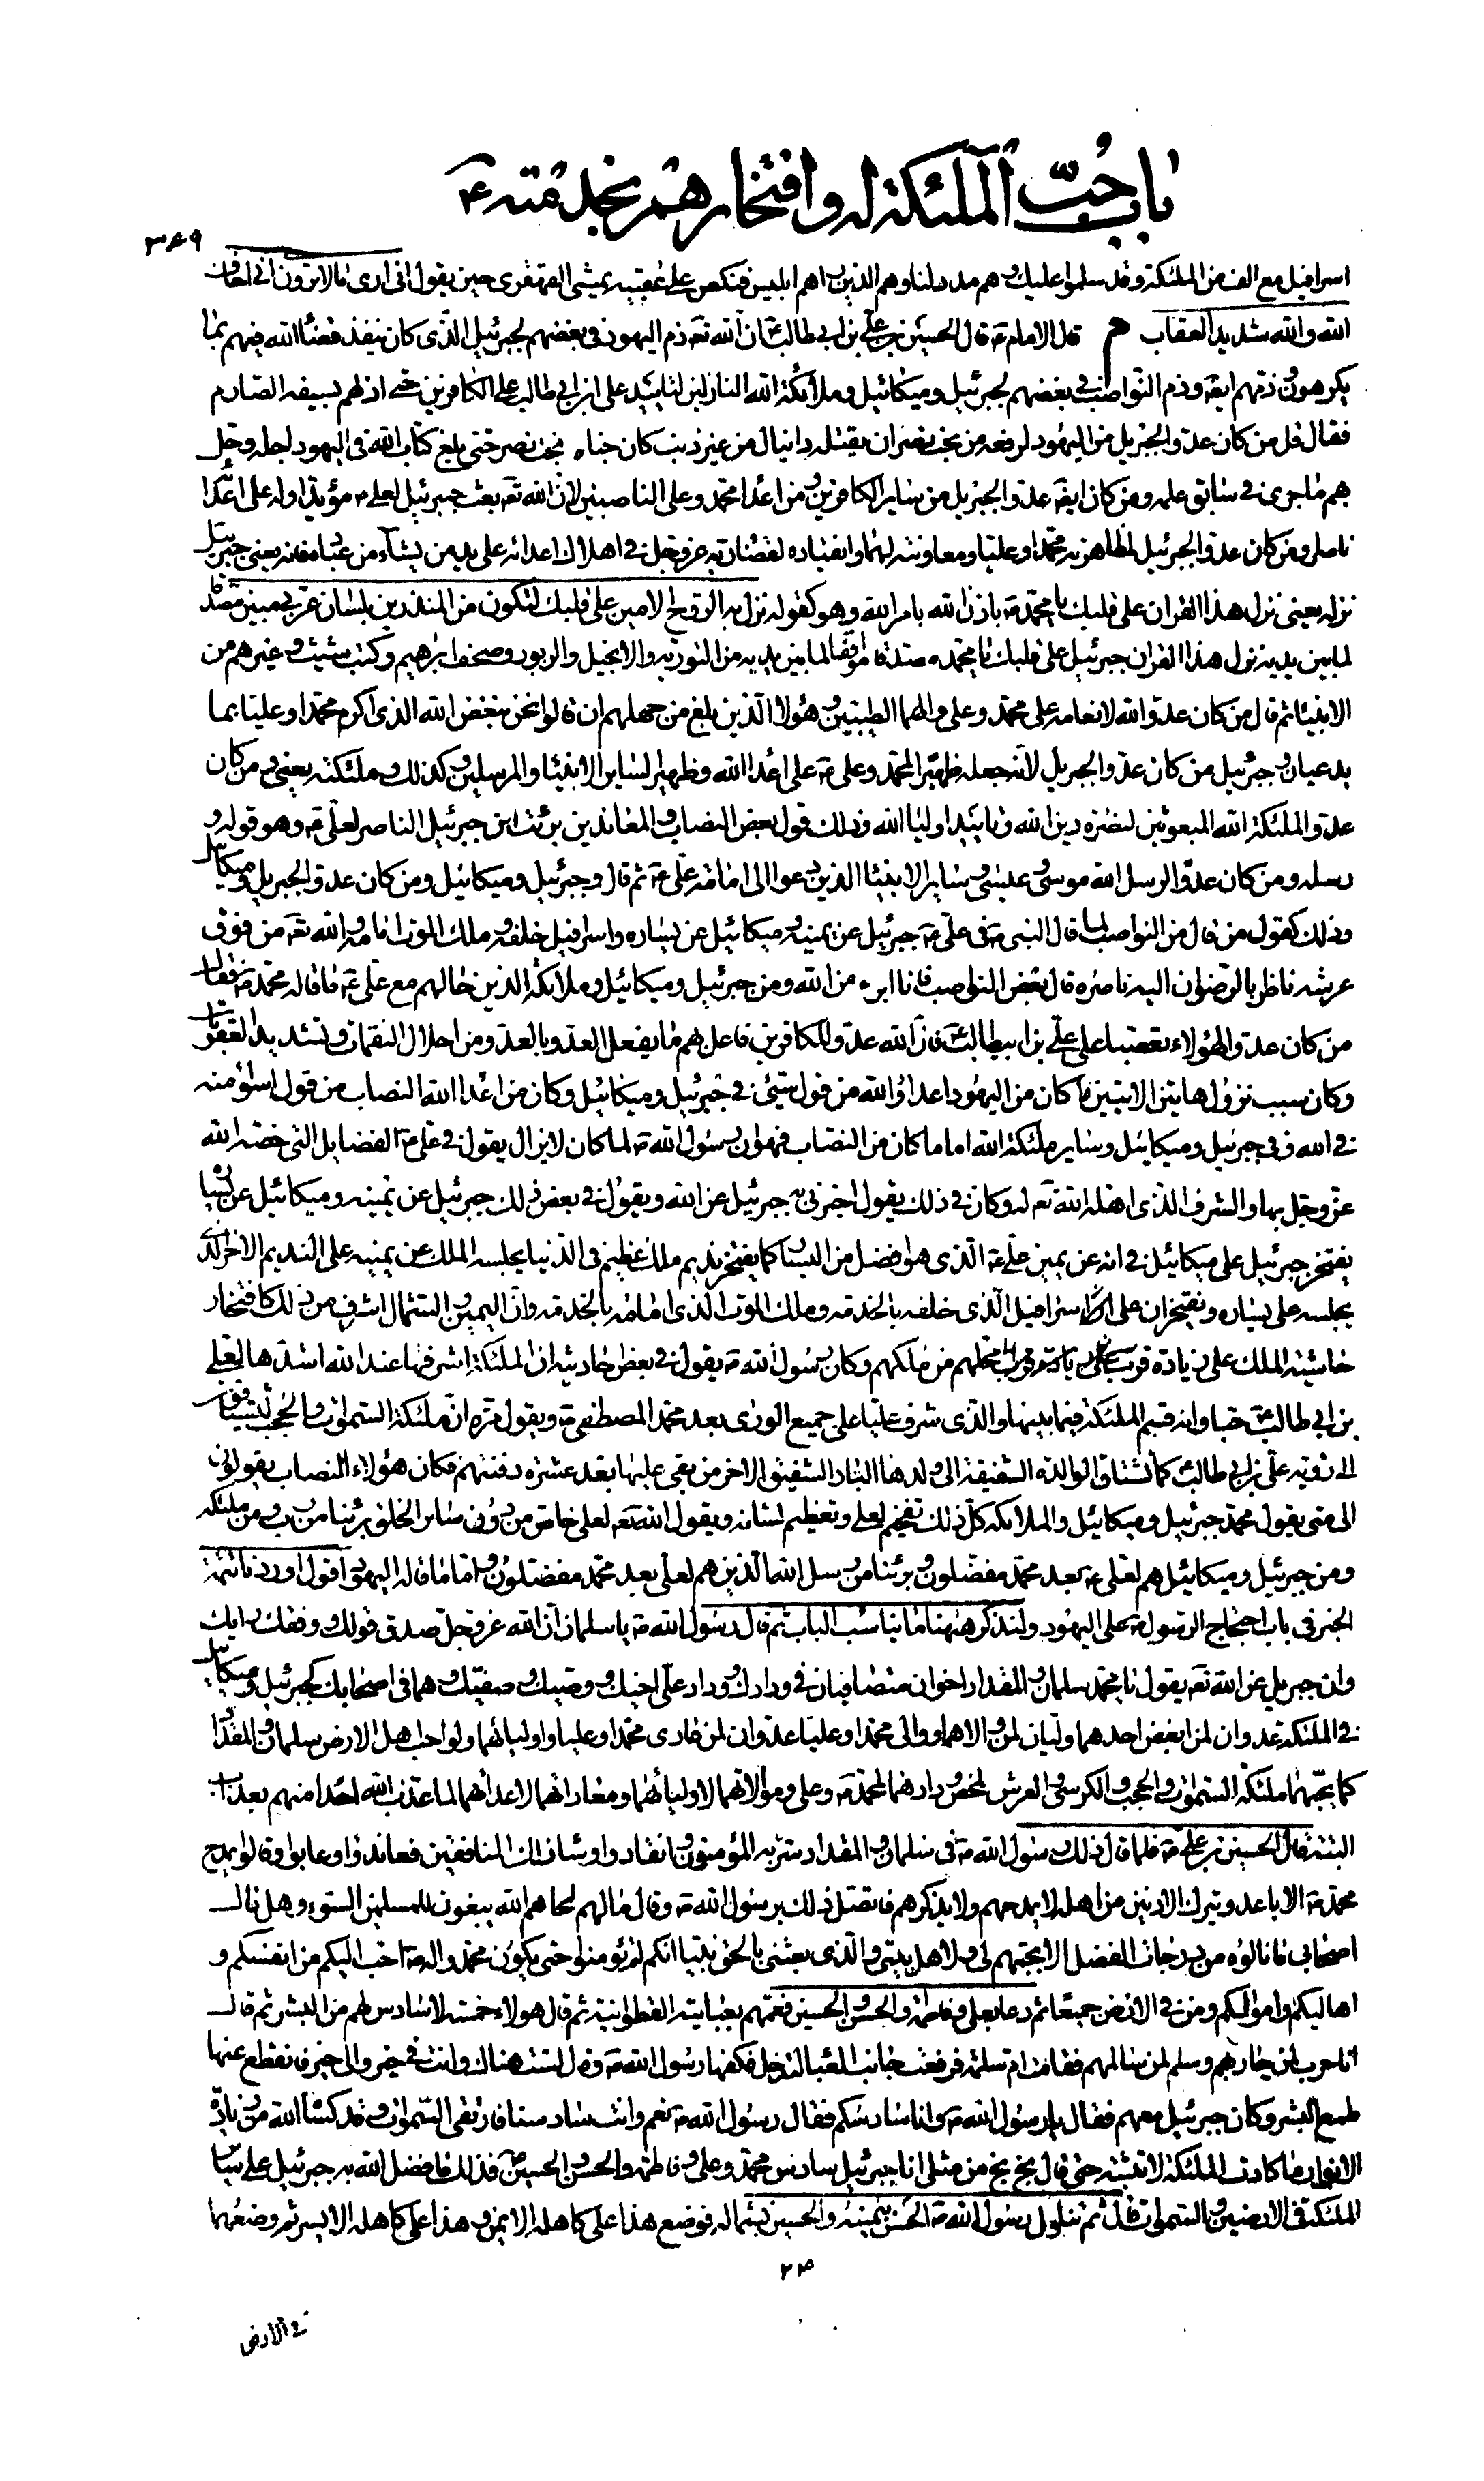 باب حُبّ الملئكة له وافتخارهم بخدمته ع
٣٦٩
اسرافيل مع الف من الملئكة وقد سلموا عليك وهم مدد لنا وهم الذين راهم ابليس فنكص على عقبيه يمشى القهقرى حين يقول انى ارى ما لا ترون انى اخاف
الله والله شديد العقاب م قال الامام ع قال الحسين بن على بن ابى طالب ع ان الله تع ذم اليهود فى بغضهم لجبرئيل الذى كان ينفذ قضاء الله فيهم بما
يكرهون وذمهم ايضا وذم النواصب فى بغضهم لجبرئيل وميكائيل وملائكة الله النازلين لتاييد على بن ابى طالب على الكافرين حتى اذلهم بسيفه الصارم
فقال قل من كان عدوا لجبريل من اليهود لرفعه من بخت نصر ان يقتله دانيال من غير ذنب كان جناه بخت نصر حتى بلغ كتاب الله فى اليهود اجله وحل
بهم ما جرى فى سابق علمه ومن كان ايضا عدوا لجبريل من ساير الكافرين ومن اعداء محمد وعلى الناصبين لان الله تع بعث جبرئيل لعلى ع مؤيدا وله على اعدائه
ناصرا ومن كان عدوا لجبرئيل لمظاهرته محمدا وعليا ومعاونته لهما وانقياده لقضاء ربه عز وجل فى اهلاك اعدائه على يد من يشاء من عباده فانه يعنى جبرئيل
نزله يعنى نزل هذا القران على قلبك يا محمد ص باذن الله بامر الله وهو كقوله نزل به الروح الامين على قلبك لتكون من المنذرين بلسان عربى مبين مصدقا
لما بين يديه نزل هذا القران جبرئيل على قلبك يا محمد ص مصدقا موافقا لما بين يديه من التورية والانجيل والزبور وصحف ابراهيم وكتب شيث وغيرهم من
الانبياء ثم قال من كان عدوا لله لانعامه على محمد وعلى والهما الطيبين وهؤلاء الذين بلغ من جهلهم ان قالوا نحن نبغض الله الذى اكرم محمدا وعليا بما
يدعيان وجبرئيل من كان عدوا لجبريل لانه جعله ظهيرا لمحمد وعلى ع على اعداء الله وظهيرا لساير الانبياء والمرسلين كذلك وملئكته يعنى ومن كان
عدوا لملئكة الله المبعوثين لنصرة دين الله وتاييد اولياء الله وذلك قول بعض النصاب والمعاندين برئت من جبرئيل الناصر لعلى ع وهو قوله و
رسله ومن كان عدوا لرسل الله موسى وعيسى وساير الانبياء الذين دعوا الى امامة على ع ثم قال وجبرئيل وميكائيل ومن كان عدوا لجبريل وميكائيل
وذلك كقول من قال من النواصب لما قال النبى ص فى على ع جبرئيل عن يمينه وميكائيل عن يساره واسرافيل خلفه وملك الموت امامه والله تع من فوق
عرشه ناظر بالرضوان اليه ناصره قال بعض النواصب فانا ابرء من الله ومن جبرئيل وميكائيل وملائكة الذين حالهم مع على ع ما قاله محمد ص فقال
من كان عدوا لهؤلاء تعصبا على على بن ابيطالب ع فان الله عدو للكافرين فاعل بهم ما يفعل العدو بالعدو من احلال النقمات وتشديد العقوبات
وكان سبب نزول هاتين الايتين ما كان من اليهود اعداء الله من قول سيئ فى جبرئيل وميكائيل وكان من اعداء الله النصاب من قول اسوء منه
فى الله وفى جبرئيل وميكائيل وساير ملئكة الله اما ما كان من النصاب فهو ان رسول الله ص لما كان لا يزال يقول فى على ع الفضايل التى خصه الله
عز وجل بها والشرف الذى اهله الله تع له وكان فى ذلك يقول اخبرنى به جبرئيل عن الله ويقول فى بعض ذلك جبرئيل عن يمينه وميكائيل عن يساره
يفتخر جبرئيل على ميكائيل فى انه عن يمين على ع الذى هو افضل من اليسار كما يفتخر نديم ملك عظيم فى الدنيا يجلسه الملك عن يمينه على النديم الاخر الذى
يجلسه على يساره ويفتخران على اسرافيل الذى خلفه بالخدمة وملك الموت الذى امامه بالخدمة وان اليمين والشمال اشرف من ذلك كافتخار
حاشية الملك على زيادة قرب محلهم من ملكهم وكان رسول الله ص يقول فى بعض احاديثه ان الملئكة اشرفها عند الله اشدها لعلى
بن ابى طالب ع حبا وانه قسم الملئكة فيما بينها والذى شرف عليا على جميع الورى بعد محمد المصطفى ص ويقول مرة ان ملئكة السموات والحجب ليشتاقون
الى رؤية على بن ابى طالب ع كما تشتاق الوالدة الشفيقة الى ولدها البار الشفيق الاخر من بقى عليها بعد عشرة دفنتهم فكان هؤلاء النصاب يقولون
الى متى يقول محمد جبرئيل وميكائيل والملائكة كل ذلك تفخيم لعلى وتعظيم لشانه ويقول الله تع لعلى خاص من دون ساير الخلق برئنا من رب ومن ملئكة
ومن جبرئيل وميكائيل هم لعلى ع بعد محمد مفضلون وبرئنا من رسل الله الذين هم لعلى بعد محمد مفضلون واما ما قاله اليهود اقول اوردنا تتمة
الخبر فى باب احتجاج الرسول ص على اليهود ولنذكر ههنا ما يناسب الباب ثم قال رسول الله ص يا سلمان ان الله عز وجل صدق قولك ووفقك رايك
وان جبريل عن الله تع يقول يا محمد سلمان والمقداد اخوان متصافيان فى ودادك ووداد على اخيك ووصيك وصفيك وهما فى اصحابك كجبرئيل وميكائيل
فى الملئكة عدوان لمن ابغض احدهما وليان لمن والاهما ووالى محمدا وعليا عدوان لمن عادى محمدا وعليا واوليائهما ولو احب اهل الارض سلمان والمقداد
كما يحبهما ملئكة السموات والحجب والكرسى والعرش لمحض ودادهما لمحمد ص وعلى وموالاتهما لاوليائهما ومعاداتهما لاعدائهما لما عذب الله احدا منهم بعذاب
البتة قال الحسين بن على ع فلما قال ذلك رسول الله ص فى سلمان والمقداد سر به المؤمنون وانقادوا وساء ذلك المنافقين فعاندوا وعابوا وقالوا يمدح
محمد ص الاباعد ويترك الادنين من اهله لا يمدحهم ولا يذكرهم فاتصل ذلك برسول الله ص وقال ما لهم لحاهم الله يبغون للمسلمين السوء وهل نال
اصحابى ما نالوه من درجات الفضل الا بحبهم لى ولاهل بيتى والذى بعثنى بالحق نبيا انكم لم تؤمنوا حتى يكون محمد واله ص احب اليكم من انفسكم و
اهاليكم واموالكم ومن فى الارض جميعا ثم دعا بعلى وفاطمة والحسن والحسين فعمهم بعبايته القطوانية ثم قال هؤلاء خمسة لا سادس لهم من البشر ثم قال
انا حرب لمن حاربهم وسلم لمن سالمهم فقامت ام سلمة فرفعت جانب العبا لتدخل فكفها رسول الله ص وقال لست هناك وانت فى خير والى خير فانقطع عنها
طمع البشر وكان جبرئيل معهم فقال يا رسول الله ص وانا سادسكم فقال رسول الله ص نعم وانت سادسنا فارتقى السموات وقد كساه الله من زيادة
الانوار ما كادت الملئكة لا تثبته حتى قال بخ بخ من مثلى انا جبرئيل سادس محمد وعلى وفاطمة والحسن والحسين ع فذلك ما فضل الله به جبرئيل على ساير
الملئكة فى الارضين والسموات قال ثم تناول رسول الله ص الحسن بيمينه والحسين بشماله فوضع هذا على كاهله الايمن وهذا على كاهله الايسر ثم وضعهما
فى الارض